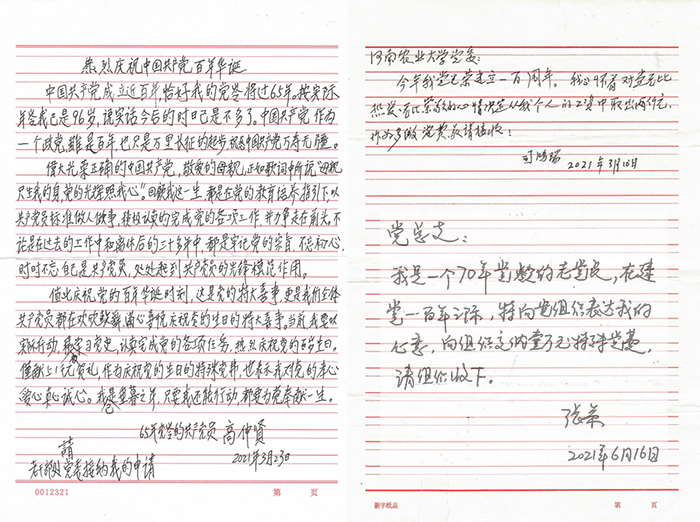 热烈庆祝中国共产党百年华诞
中国共产党成立近百年,恰好我的党令将过65年。按实际
年令我已是96岁,说实话今后的时日已是不多了。中国共产党作为
一个政党,虽是百年,也只是万里长征的起步,祝愿中国共产党万寿无疆。
伟大光荣正确的中国共产党,敬爱的母亲,正如歌词中所说“母亲
只生我的身,党的光辉照我心”。回顾我这一生,都是在党的教育培养指引下,以
共产党员标准做人做事,积极认真的完成党的各项工作,并力争走在前头。不
论是在过去的工作中和离休后的三十多年中,都是牢记党的宗旨,不忘初心,
时时不忘自己是共产党员,处处起到共产党员的先锋模范作用。
值此庆祝党的百年华诞时刻,这是党的特大喜事,更是我们全体
共产党员都在欢欣鼓舞,满心喜悦庆祝党的生日的特大喜事。当前我要以
实际行动,学习党史,认真完成党的各项任务,热烈庆祝党的百岁生日。
仅献上1万元贺礼,作为庆祝党的生日的特殊党费,也表示我对党的衷心
爱心真心诚心。我虽是暮之年,只要我还能行动,都要为党奉献一生。
65年党令的共产党员 高仲贤
请
老干部处党委接纳我的申请 2021年3月23日
0012321 第 页
河南农业大学党委:
今年我党光荣建立一百周年。我心怀着对党无比
热爱、无比崇敬的心情决定从我个人的工资中取出两万元,
作为多缴党费,敬请接收!
司鸿瑞
2021年3月10日
党总支:
我是一个70年党龄的老党员,在建
党一百年之际,特向党组织表达我的
心意,向组织交纳壹万元特殊党费,
请组织收下。
张荣
2021年6月16日
新宇纸品 第 页